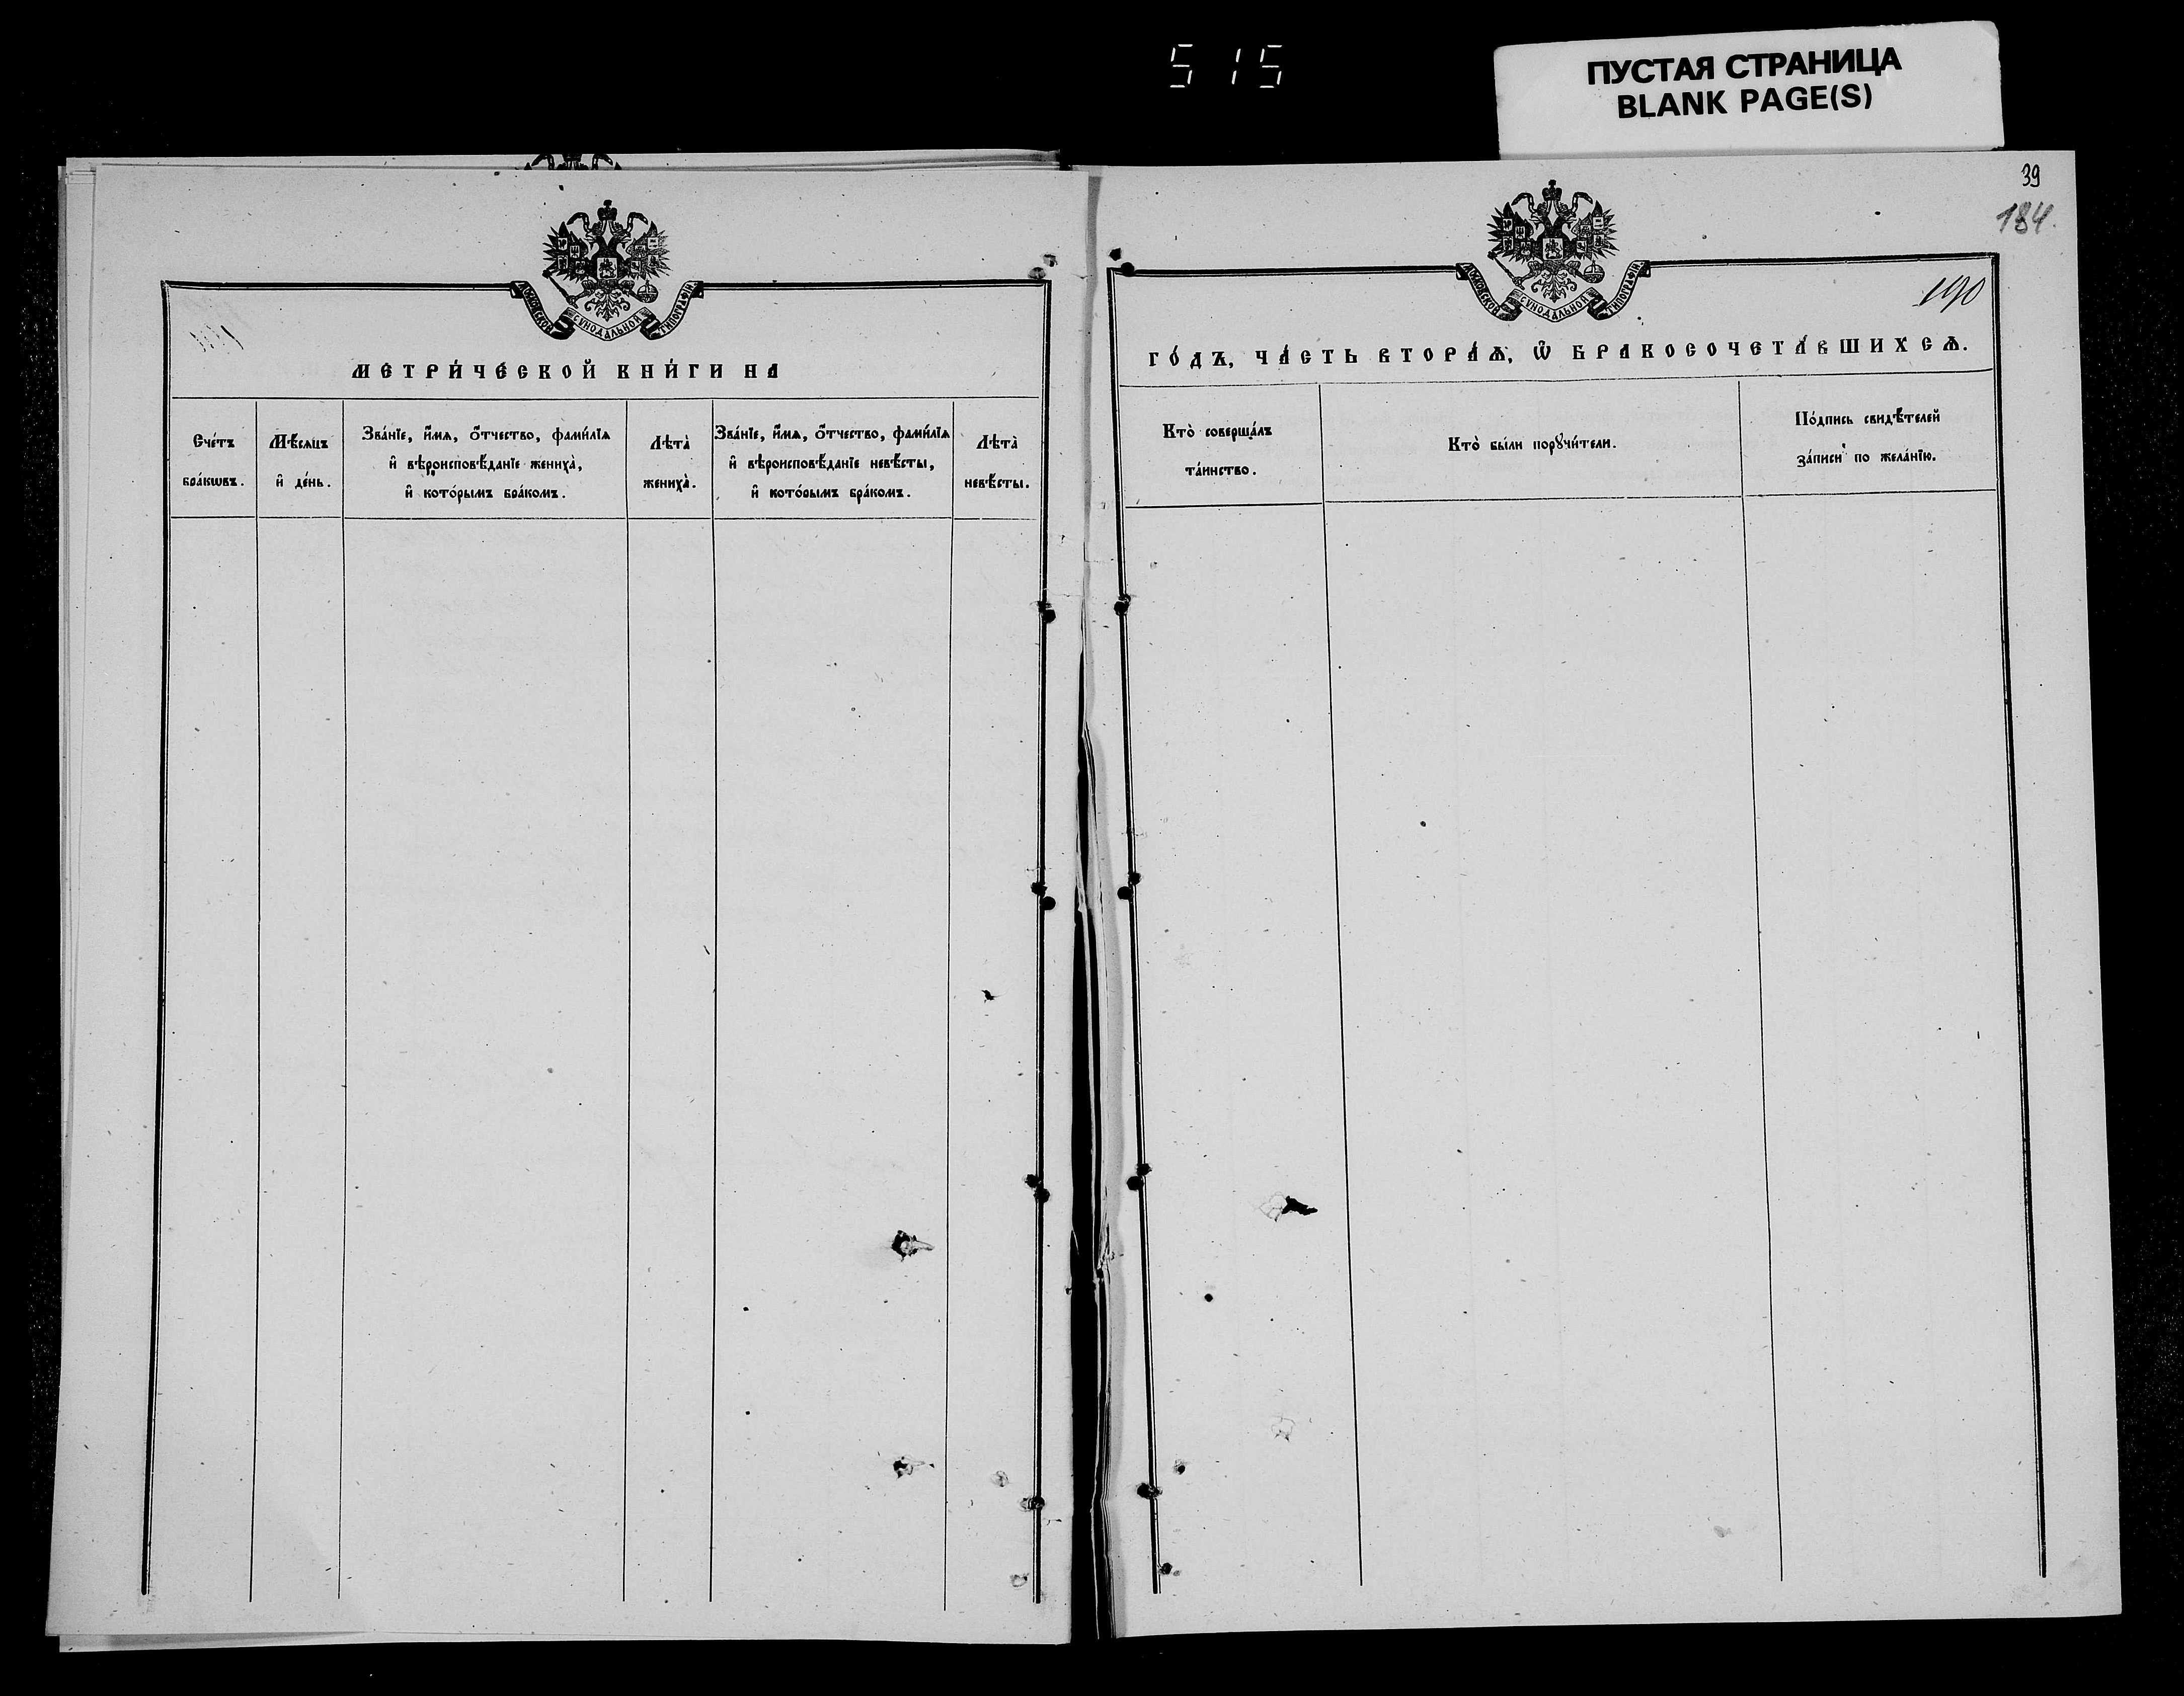 515
ПУСТАЯ СТРАНИЦА
BLANK PAGE(S)
39
184.
190
МОСКОВСКОЙ СѴНОДАЛЬНОЙ ТИПОГРАФІИ.
МЕТРИ́ЧЕСКОЙ КНИ́ГИ НА
Сче́тъ
бра́кѡвъ.
Мѣ́сяцъ
и҆ де́нь.
Зва́нїе, и҆́мѧ, ѻ҆́тчество, фами́лїѧ
и҆ вѣроисповѣ́данїе жениха̀,
и҆ кото́рымъ бра́комъ.
Лѣта̀
жениха̀.
Зва́нїе, и҆́мѧ, ѻ҆́тчество, фами́лїѧ
и҆ вѣроисповѣ́данїе невѣ́сты,
и҆ кото́рымъ бра́комъ.
Лѣта̀
невѣ́сты.
МОСКОВСКОЙ СѴНОДАЛЬНОЙ ТИПОГРАФІИ.
ГО́ДЪ, ЧА́СТЬ ВТОРА́Ѧ, Ѽ БРАКОСОЧЕТА́ВШИХСѦ.
Кто̀ соверша́лъ
та́инство.
Кто̀ бы́ли порꙋчи́тели.
По́дпись свидѣ́телей
за́писи по жела́нїю.